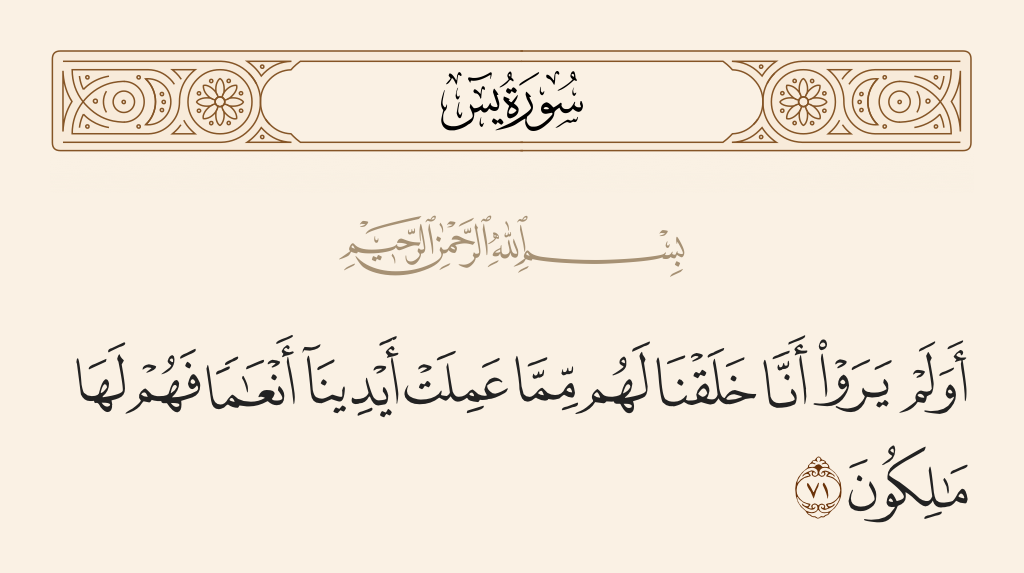 سُورَةُ يسٓ
بِسْمِ ٱللَّهِ ٱلرَّحْمَٰنِ ٱلرَّحِيمِ
أَوَلَمْ يَرَوْا۟ أَنَّا خَلَقْنَا لَهُم مِّمَّا عَمِلَتْ أَيْدِينَآ أَنْعَٰمًا فَهُمْ لَهَا
مَٰلِكُونَ ٧١